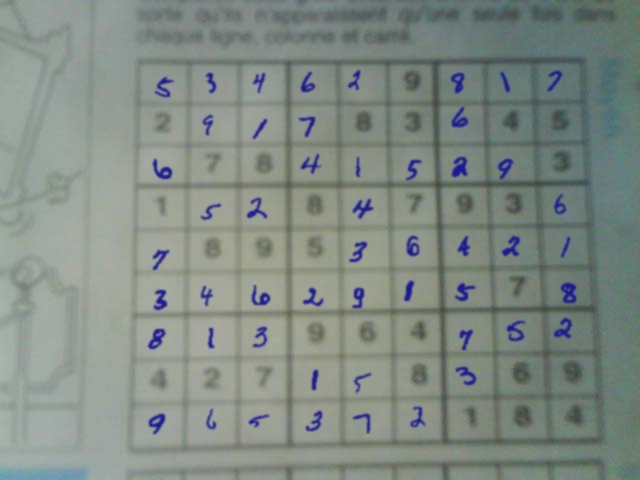 sorte qu'ils n'apparaissent qu'une seule fois dans
chaque ligne, colonne et carré.
5 3 4 6 2 9 8 1 7
2 9 1 7 8 3 6 4 5
6 7 8 4 1 5 2 9 3
1 5 2 8 4 7 9 3 6
7 8 9 5 3 6 4 2 1
3 4 6 2 9 1 5 7 8
8 1 3 9 6 4 7 5 2
4 2 7 1 5 8 3 6 9
9 6 5 3 7 2 1 8 4